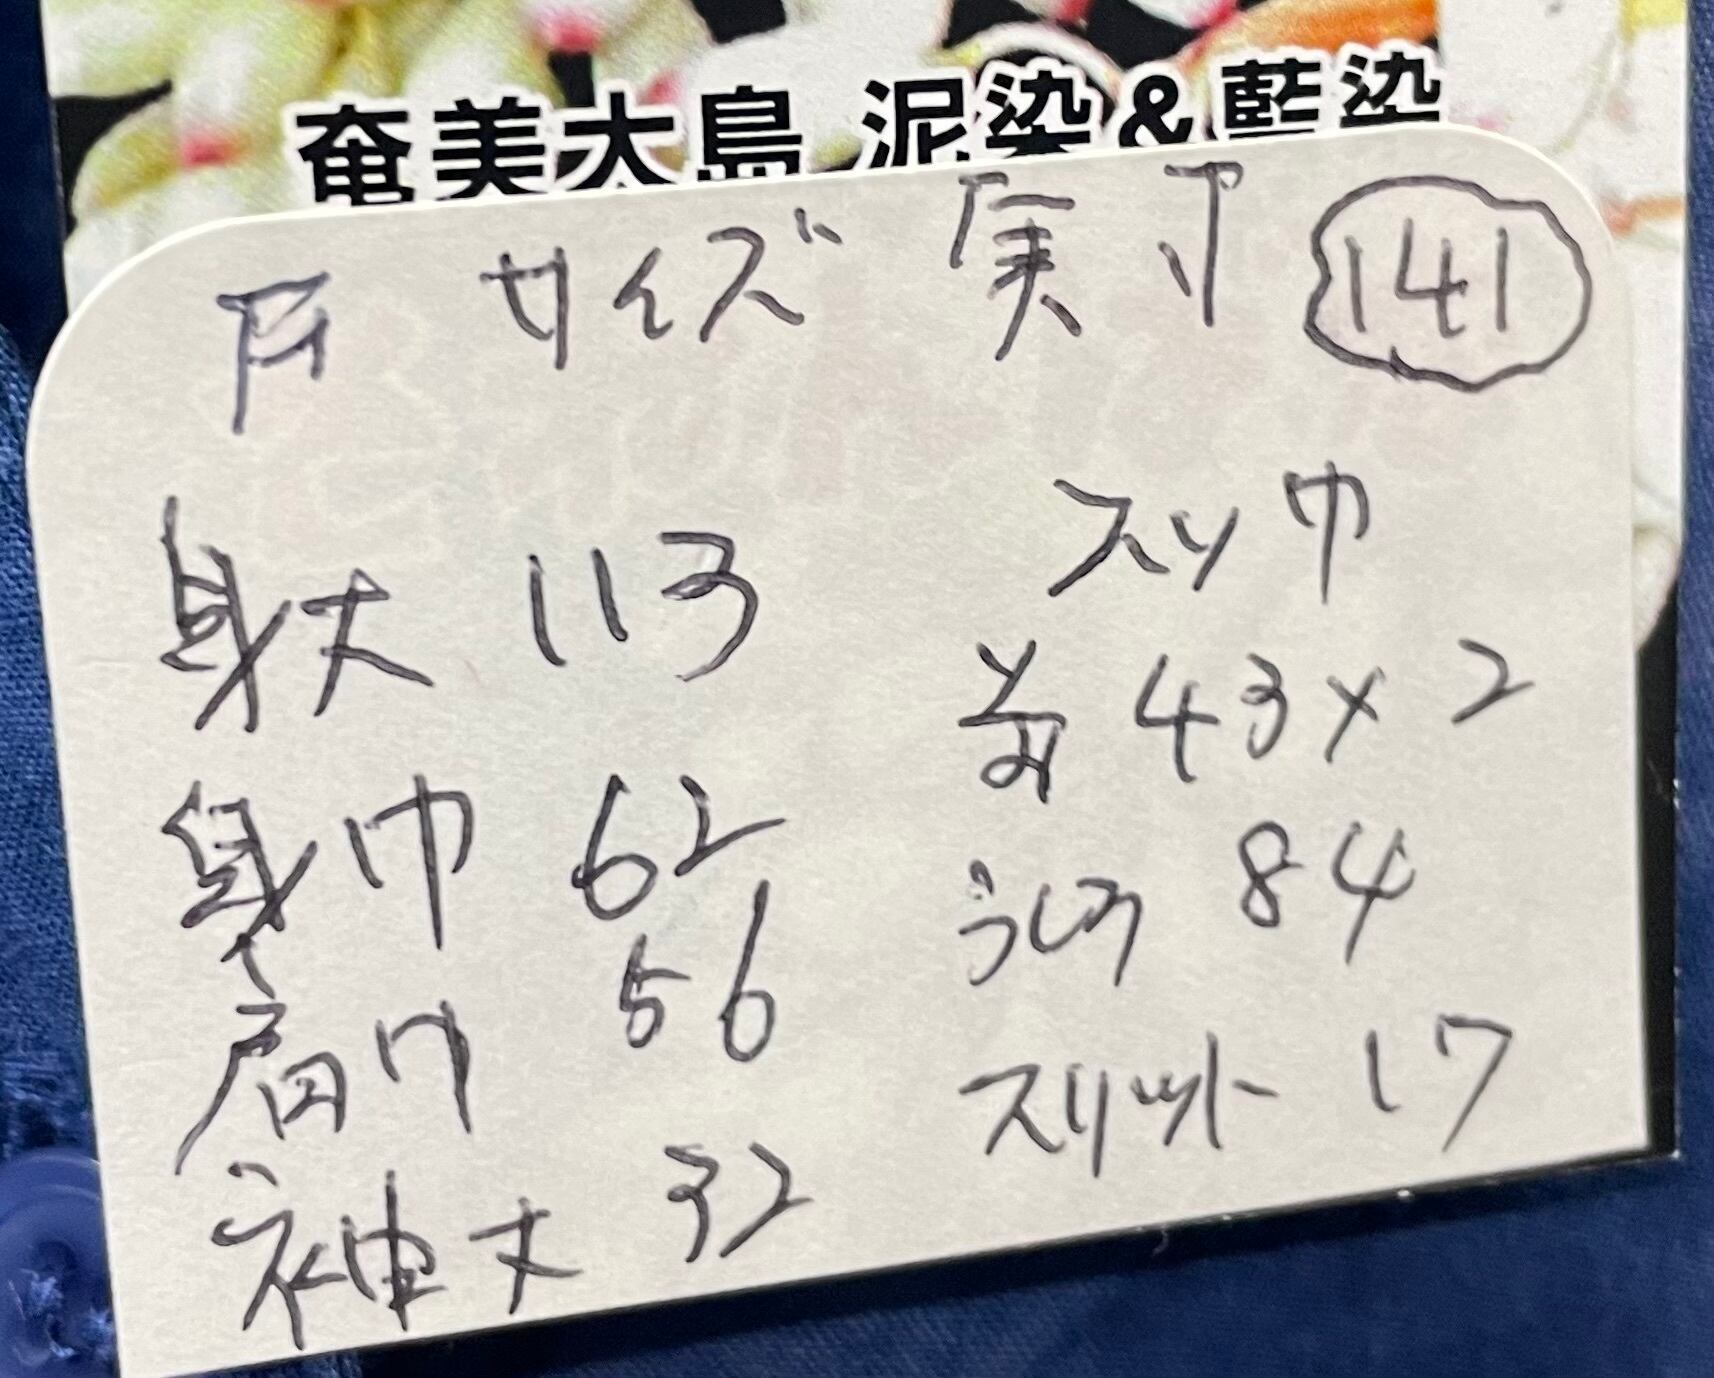 奄美大島 泥染&藍染
F サイズ 実寸 141
身丈 113
身巾 62
肩巾 56
袖丈 32
スソ巾
前 43×2
うしろ 84
スリット 17